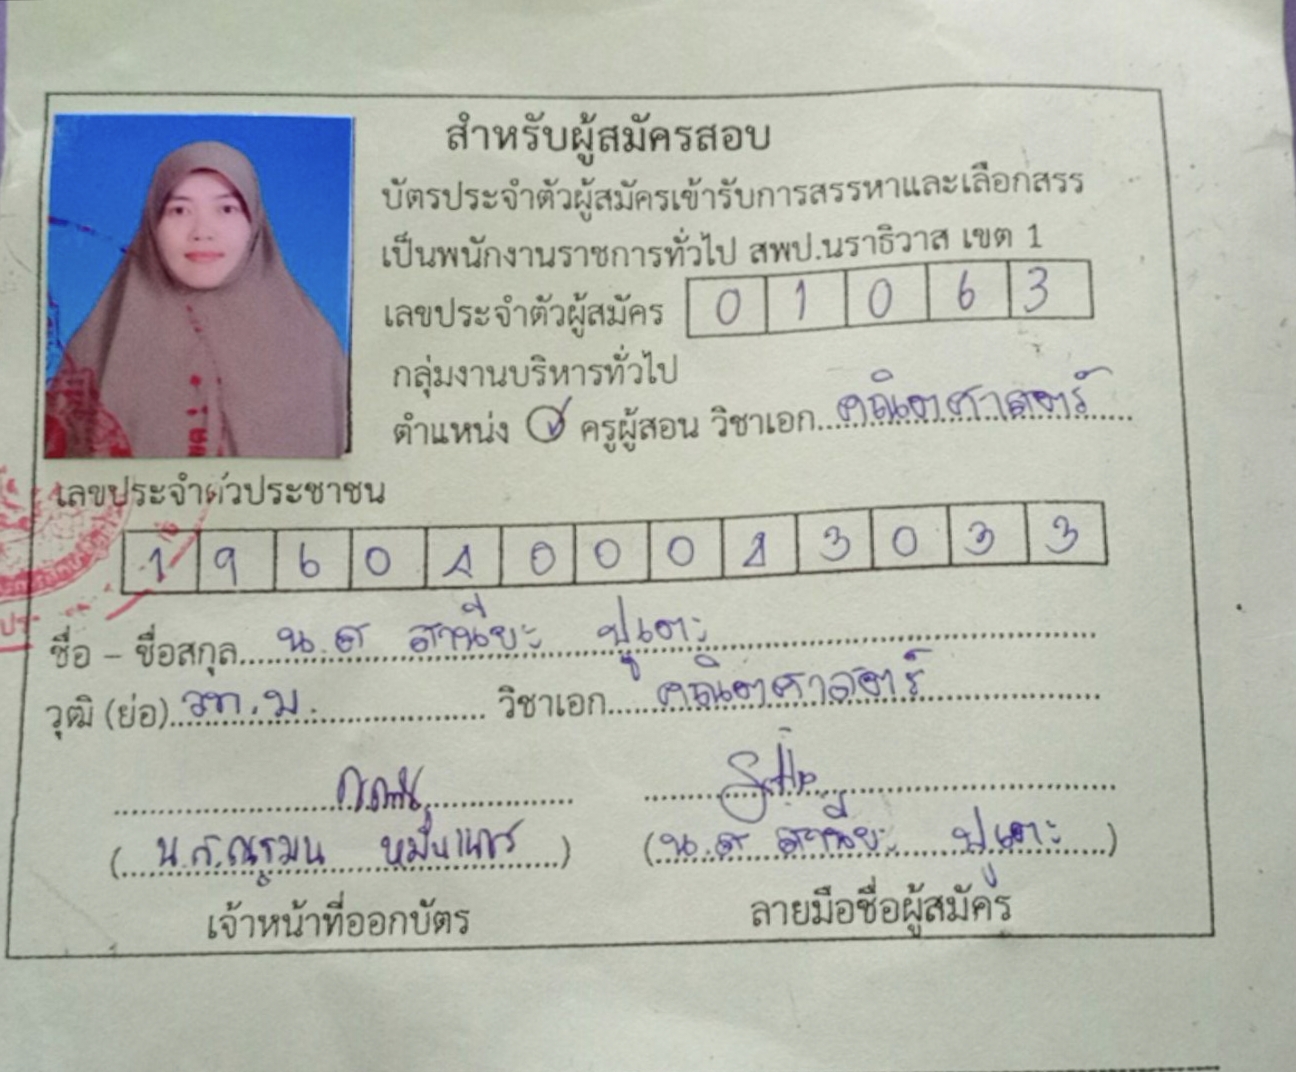 สำหรับผู้สมัครสอบ
บัตรประจำตัวผู้สมัครเข้ารับการสรรหาและเลือกสรร
เป็นพนักงานราชการทั่วไป สพป.นราธิวาส เขต 1
เลขประจำตัวผู้สมัคร 0 1 0 6 3
กลุ่มงานบริหารทั่วไป
ตำแหน่ง ครูผู้สอน วิชาเอก คณิตศาสตร์
เลขประจำตัวประชาชน
1 9 6 0 1 0 0 0 1 3 0 3 3
ชื่อ – ชื่อสกุล น.ส สานียะ ปูเตะ
วุฒิ (ย่อ) วท.บ. วิชาเอก คณิตศาสตร์
(น.ส.ณฐมน) (น.ส สานียะ ปูเตะ)
เจ้าหน้าที่ออกบัตร ลายมือชื่อผู้สมัคร